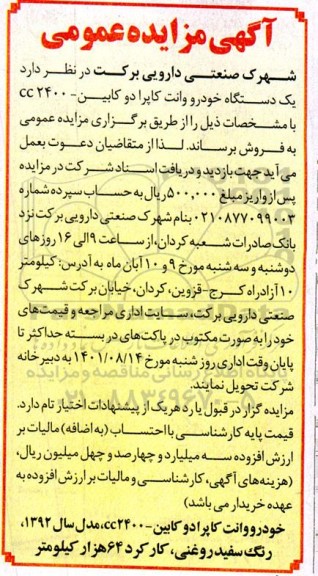 آگهی مزایده عمومی
شهرک صنعتی دارویی برکت در نظر دارد
یک دستگاه خودرو وانت کاپرا دو کابین- ۲۴۰۰ cc
با مشخصات ذیل را از طریق برگزاری مزایده عمومی
به فروش برساند. لذا از متقاضیان دعوت بعمل
می آید جهت بازدید و دریافت اسناد شرکت در مزایده
پس از واریز مبلغ ۵۰۰,۰۰۰ ریال به حساب سپرده شماره
۰۲۱۰۸۷۷۰۹۹۰۰۳ بنام شهرک صنعتی دارویی برکت نزد
بانک صادرات شعبه کردان، از ساعت ۹ الی ۱۶ روزهای
دوشنبه و سه شنبه مورخ ۹ و ۱۰ آبان ماه به آدرس: کیلومتر
۱۰ آزادراه کرج-قزوین، کردان، خیابان برکت شهرک
صنعتی دارویی برکت، سایت اداری مراجعه و قیمت‌های
خود را به صورت مکتوب در پاکت‌های در بسته حداکثر تا
پایان وقت اداری روز شنبه مورخ ۱۴۰۱/۰۸/۱۴ به دبیرخانه
شرکت تحویل نمایند.
مزایده گزار در قبول یا رد هریک از پیشنهادات اختیار تام دارد.
قیمت پایه کارشناسی با احتساب (به اضافه) مالیات بر
ارزش افزوده سه میلیارد و چهارصد و چهل میلیون ریال،
(هزینه‌های آگهی، کارشناسی و مالیات بر ارزش افزوده به
عهده خریدار می باشد)
خودرو وانت کاپرا دو کابین-۲۴۰۰cc، مدل سال ۱۳۹۲،
رنگ سفید روغنی، کارکرد ۶۴ هزار کیلومتر